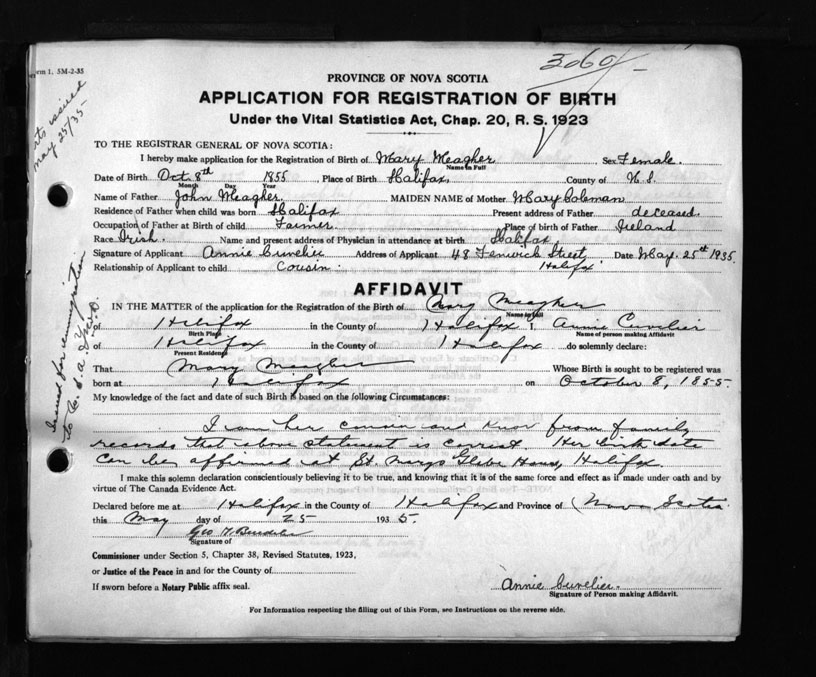 orm 1. 5M-2-35
3060
rts issued
May 25/35
PROVINCE OF NOVA SCOTIA
APPLICATION FOR REGISTRATION OF BIRTH
Under the Vital Statistics Act, Chap. 20, R. S. 1923
TO THE REGISTRAR GENERAL OF NOVA SCOTIA:
I hereby make application for the Registration of Birth of Mary Meagher Sex Female.
Name in Full
Date of Birth Oct 8th 1855 Place of Birth Halifax County of N.S.
Month Day Year
Name of Father John Meagher MAIDEN NAME of Mother Mary Coleman
Residence of Father when child was born Halifax Present address of Father deceased.
Occupation of Father at Birth of child Farmer Place of birth of Father Ireland
Race Irish Name and present address of Physician in attendance at birth Halifax
Signature of Applicant Annie Cuvelier Address of Applicant 48 Fenwick Street, Halifax Date May 25th 1935
Relationship of Applicant to child Cousin
Issued for
to
AFFIDAVIT
IN THE MATTER of the application for the Registration of the Birth of Mary Meagher
Name in full
of Halifax in the County of Halifax I, Annie Cuvelier
Birth Place Name of person making Affidavit
of Halifax in the County of Halifax do solemnly declare:
Present Residence
That Mary Meagher Whose Birth is sought to be registered was
born at Halifax on October 8, 1855.
My knowledge of the fact and date of such Birth is based on the following Circumstances:
I am her cousin and know from family
records that above statement is correct. Her birth date
can be affirmed at St. Marys Glebe House, Halifax.
I make this solemn declaration conscientiously believing it to be true, and knowing that it is of the same force and effect as if made under oath and by
virtue of The Canada Evidence Act.
Declared before me at Halifax in the County of Halifax and Province of Nova Scotia
this May day of 25 1935.
Geo
Signature of
Commissioner under Section 5, Chapter 38, Revised Statutes, 1923,
or Justice of the Peace in and for the County of
If sworn before a Notary Public affix seal. Annie Cuvelier.
Signature of Person making Affidavit.
For Information respecting the filling out of this Form, see Instructions on the reverse side.